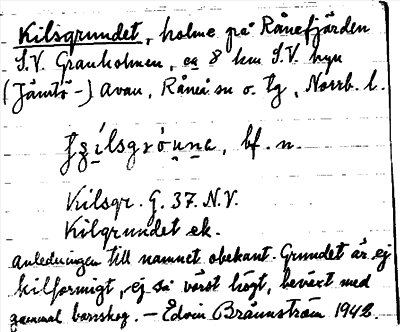 Kilsgrundet, holme på Rånefjärden
S.V. Granholmen, ca 8 km S.V. byn
(Jämtö-) Avan, Råneå sn o. tg, Norrb. l.
bf. n.
Kilsgr. G. 37. N.V.
Kilgrundet ek.
Anledningen till namnet obekant. Grundet är ej
kilformigt, ej så värst högt, beväxt med
gammal barrskog. — Edvin Brännström 1942.